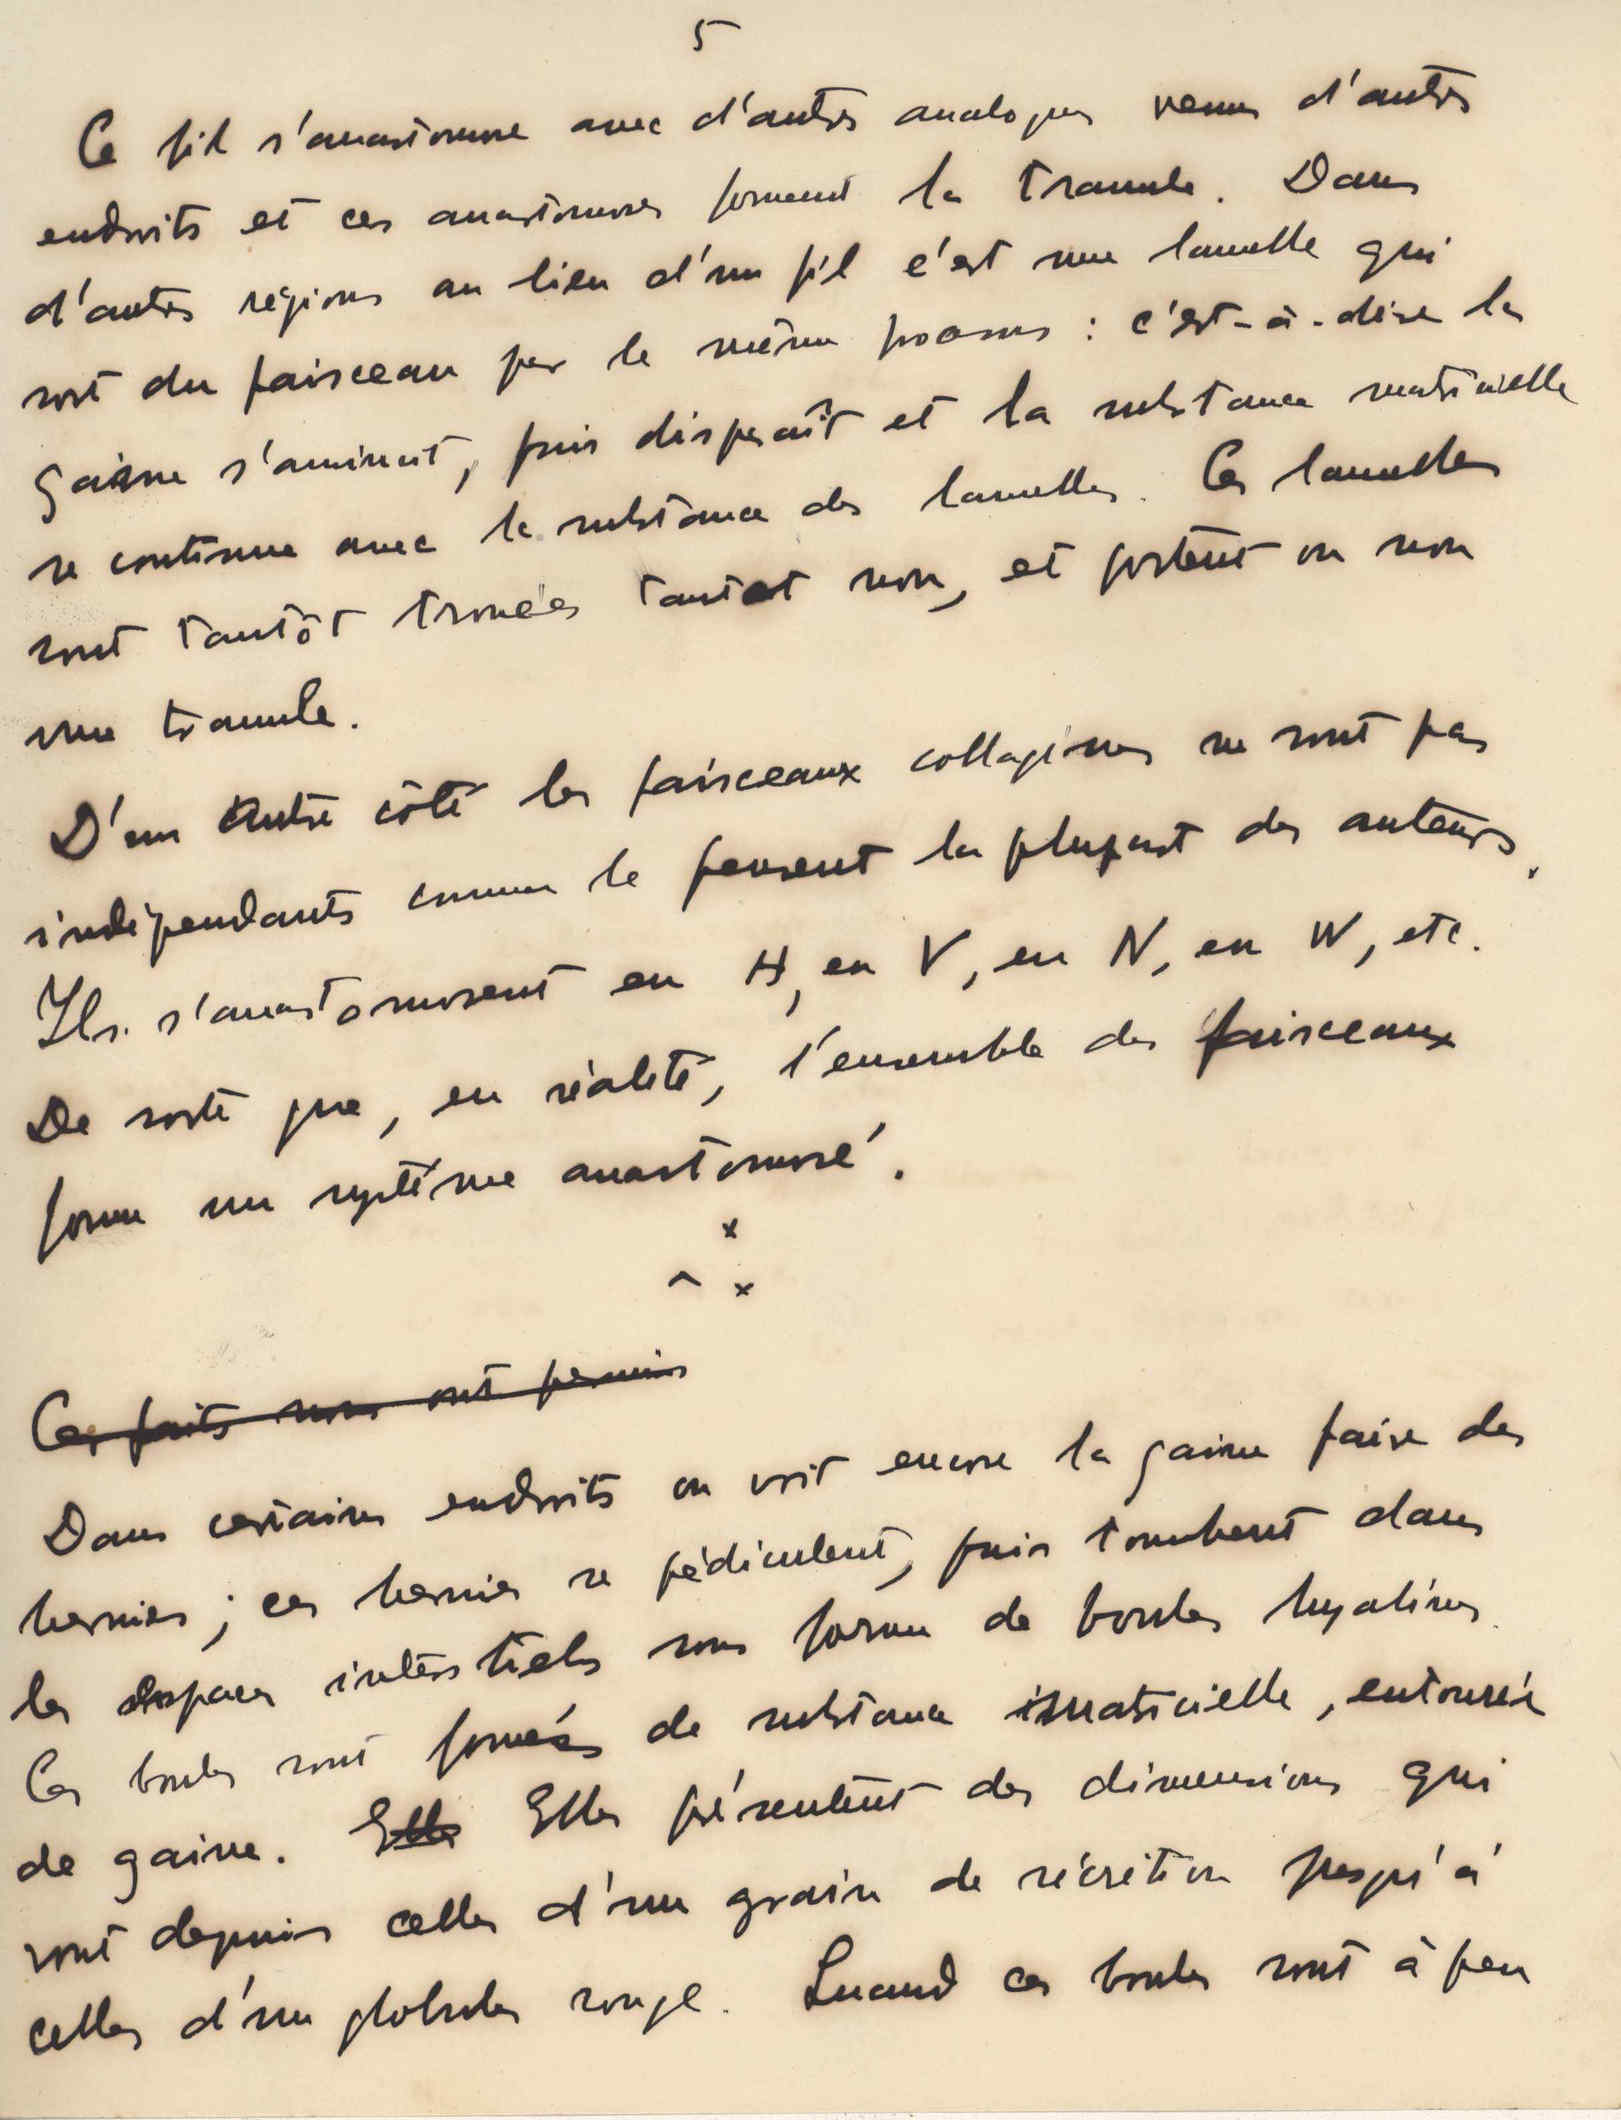 5
Ce fil s'anastomose avec d'autres analogues venus d'autres
endroits et ces anastomoses forment la tramule. Dans
d'autres régions au lieu d'un fil c'est une lamelle qui
sort du faisceau par le même processus : c'est-à-dire la
gaine s'amincit, puis disparaît et la substance matricielle
se continue avec la substance des lamelles. Ces lamelles
sont tantôt trouées tantôt non, et portent ou non
une tramule.
D'un autre côté les faisceaux collagènes ne sont pas
indépendants comme le pensent la plupart des auteurs.
Ils s'anastomosent en H, en V, en N, en W, etc.
De sorte que, en réalité, l'ensemble des faisceaux
forme un système anastomosé.
x
^ x
Ces faits nous ont permis
Dans certains endroits on voit encore la gaine faire des
hernies ; ces hernies se pédiculent, puis tombent dans
les espaces interstitiels sous forme de boules hyalines.
Ces boules sont formées de substance matricielle, entourée
de gaine. Elles Elles présentent des dimensions qui
vont depuis celles d'un grain de sécrétion jusqu'à
celles d'un globules rouge. Quand ces boules sont à peu